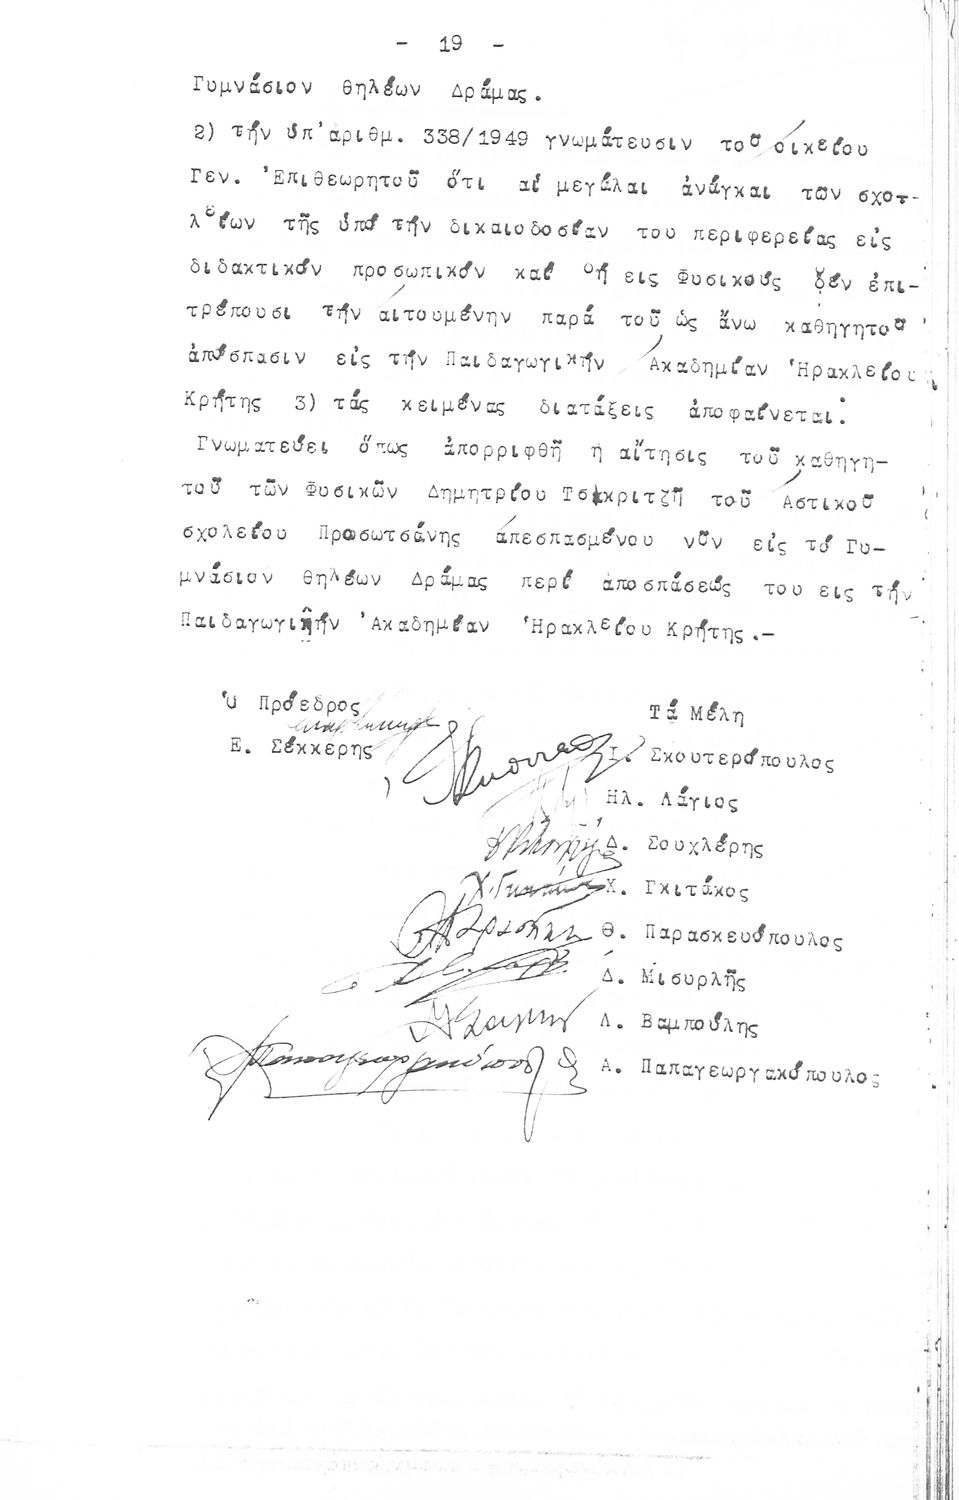 - 19 -
Γυμνάσιον θηλέων Δράμας.
2) τήν ὑπ'ἀριθμ. 338/1949 γνωμάτευσιν τοῦ οἰκείου
Γεν. Ἐπιθεωρητοῦ ὅτι αἱ μεγάλαι ἀνάγκαι των σχο-
λείων τῆς ὑπό τήν δικαιοδοσίαν του περιφερείας εἰς
διδακτικόν προσωπικόν καί εις Φυσικούς δέν ἐπι-
τρέπουσι τήν αἰτουμένην παρά τοῦ ὡς ἄνω καθηγητοῦ
ἀπόσπασιν εἰς τήν Παιδαγωγικήν Ἀκαδημίαν Ἡρακλείου
Κρήτης 3) τάς κειμένας διατάξεις ἀποφαίνεται:
Γνωματεύει ὅπως ἀπορριφθῆ ἡ αἴτησις τοῦ καθηγη-
τοῦ τῶν Φυσικῶν Δημητρίου Τσακριτζῆ τοῦ Ἀστικοῦ
σχολείου Προσωτσάνης ἀπεσπασμένου νῦν εἰς τό Γυ-
μνάσιον θηλέων Δράμας περί ἀποσπάσεώς του εις τήν
Παιδαγωγικήν Ἀκαδημίαν Ἡρακλείου Κρήτης.-
Ὁ Πρόεδρος
Τά Μέλη
Ε. Σέκκερης
Ι. Σκουτερόπουλος
Ηλ. Λάγιος
Δ. Σουχλέρης
Χ. Γκιτάκος
Θ. Παρασκευόπουλος
Δ. Μισυρλῆς
Λ. Βαμπούλης
Α. Παπαγεωργακόπουλος